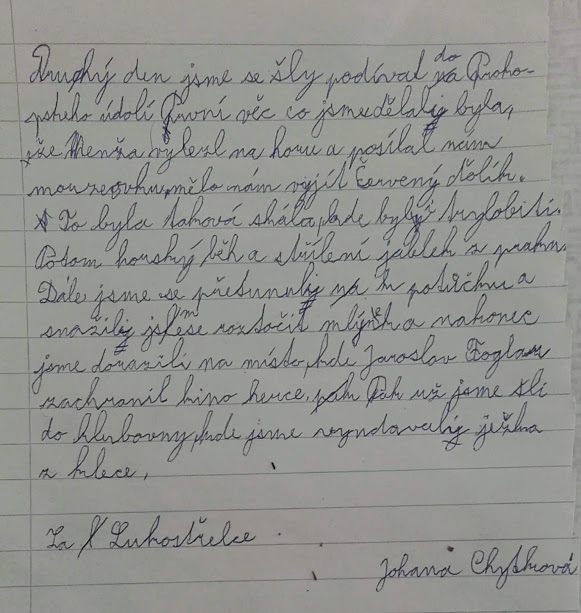 Druhý den jsme se šly podívat do Proko-
pského údolí První věc co jsme dělaly byla,
že Menža vylezl na horu a posílal nam
mouzeovku, mělo nám vyjít Červený ďolík.
To byla taková skála, kde byly trylobiti.
Potom horský běh a střílení jablek z praku.
Dále jsme se přesunuly k potůčku a
snažily jsme se roztočit mlýnek a nakonec
jsme dorazili na místo, kde Jaroslav Foglar
zachranil kino herce. Pak už jsme šli
do klubovny, kde jsme vyndavaly ježka
z klece.
Za Lukostřelce
Johana Chytková